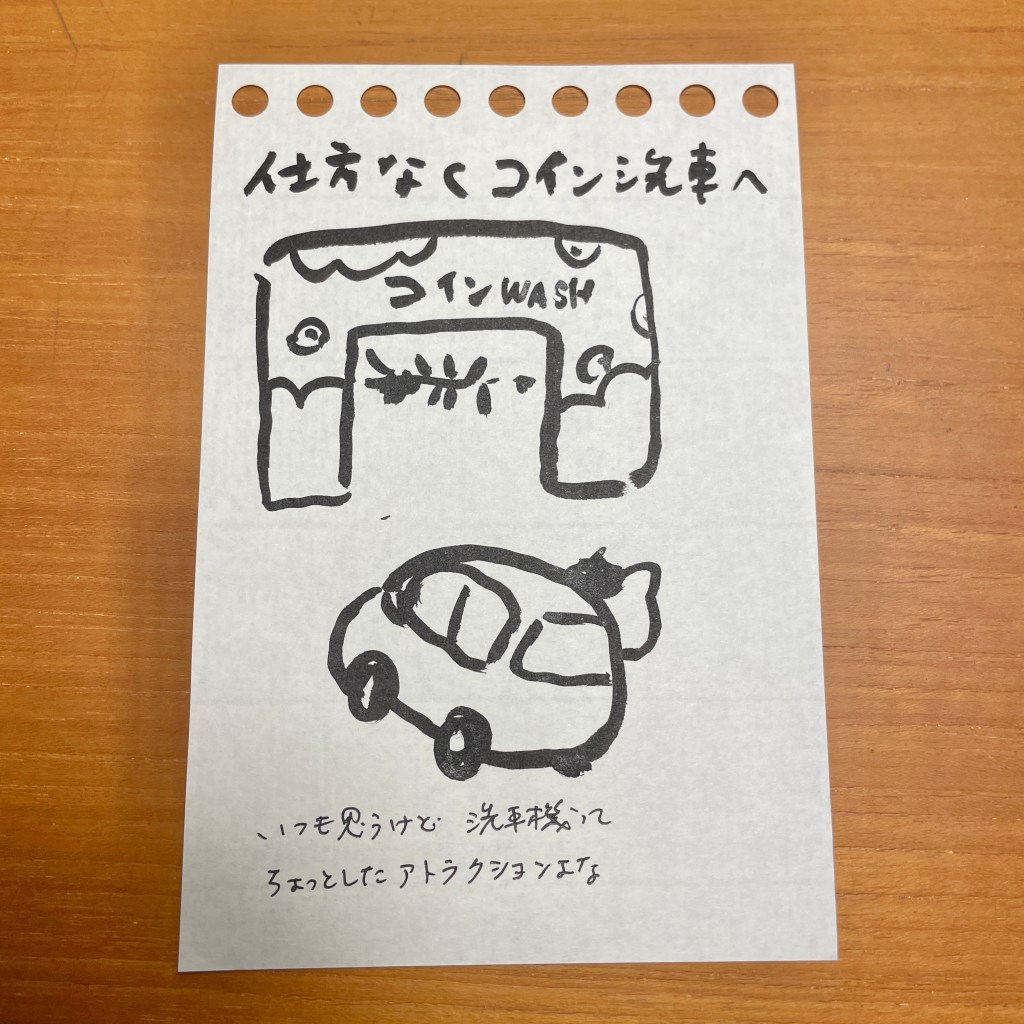 仕方なくコイン洗車へ
コインWASH
いつも思うけど 洗車機って
ちょっとしたアトラクションよな